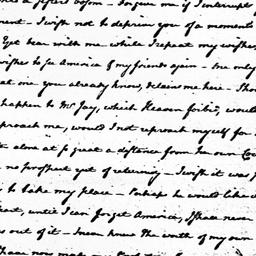 a sister's bosom - forgive me if I interrupt
ment - I wish not to deprive you of a moments
Yet bear with me while I repeat my wishes,
wishes to see America & my friends again - the only
at one, you already know, detains me here - Shou
happen to Mr Jay, which Heaven forbid, would
proach me, would I not reproach myself for
alone at so great a distance from her own Cou
no prospect yet of returning - I wish it was
to take my place - Perhaps he would like
part, until I can forget America, I shall never
out of it - I never knew the worth of my own